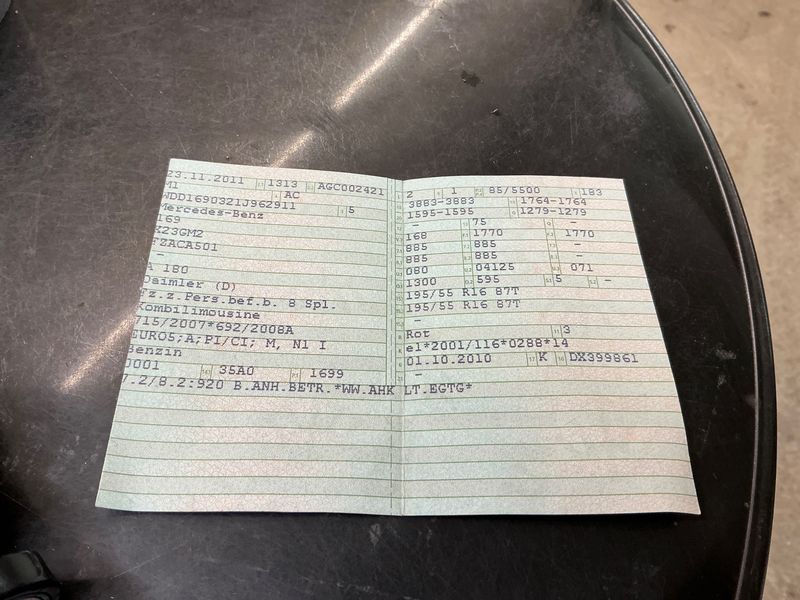 23.11.2011 1313 AGC002421
M1 AC
WDD1690321J962911 5
Mercedes-Benz
169
K23GM2
FZACA501
-
A 180
Daimler (D)
Fz.z.Pers.bef.b. 8 Spl.
Kombilimousine
715/2007*692/2008A
EURO5;A;PI/CI; M, N1 I
Benzin
0001 35A0 1699
7.2/8.2:920 B.ANH.BETR.*WW.AHK LT.EGTG*
2 1 85/5500 183
3883-3883 1764-1764
1595-1595 1279-1279
- 75 -
168 1770 1770
885 885 -
885 885 -
080 04125 071
1300 595 5 -
195/55 R16 87T
195/55 R16 87T
-
Rot 3
e1*2001/116*0288*14
01.10.2010 K DX399861
-